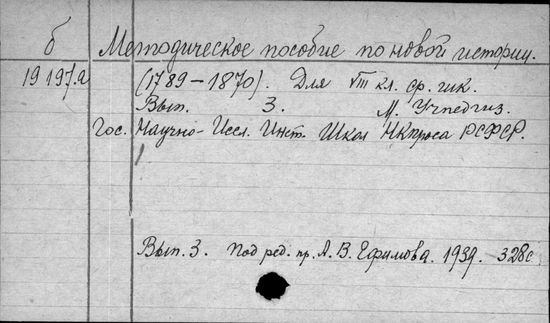 б Методическое пособие по новой истории.
19 197.а (1789-1870). Для VIII кл. ср. шк.
Вып. 3. М. Учпедгиз.
Гос. Научно-Иссл. Инст. Школ НКпроса РСФСР.
Вып. 3. Под ред. пр. А. В. Ефимова. 1939. 328с.